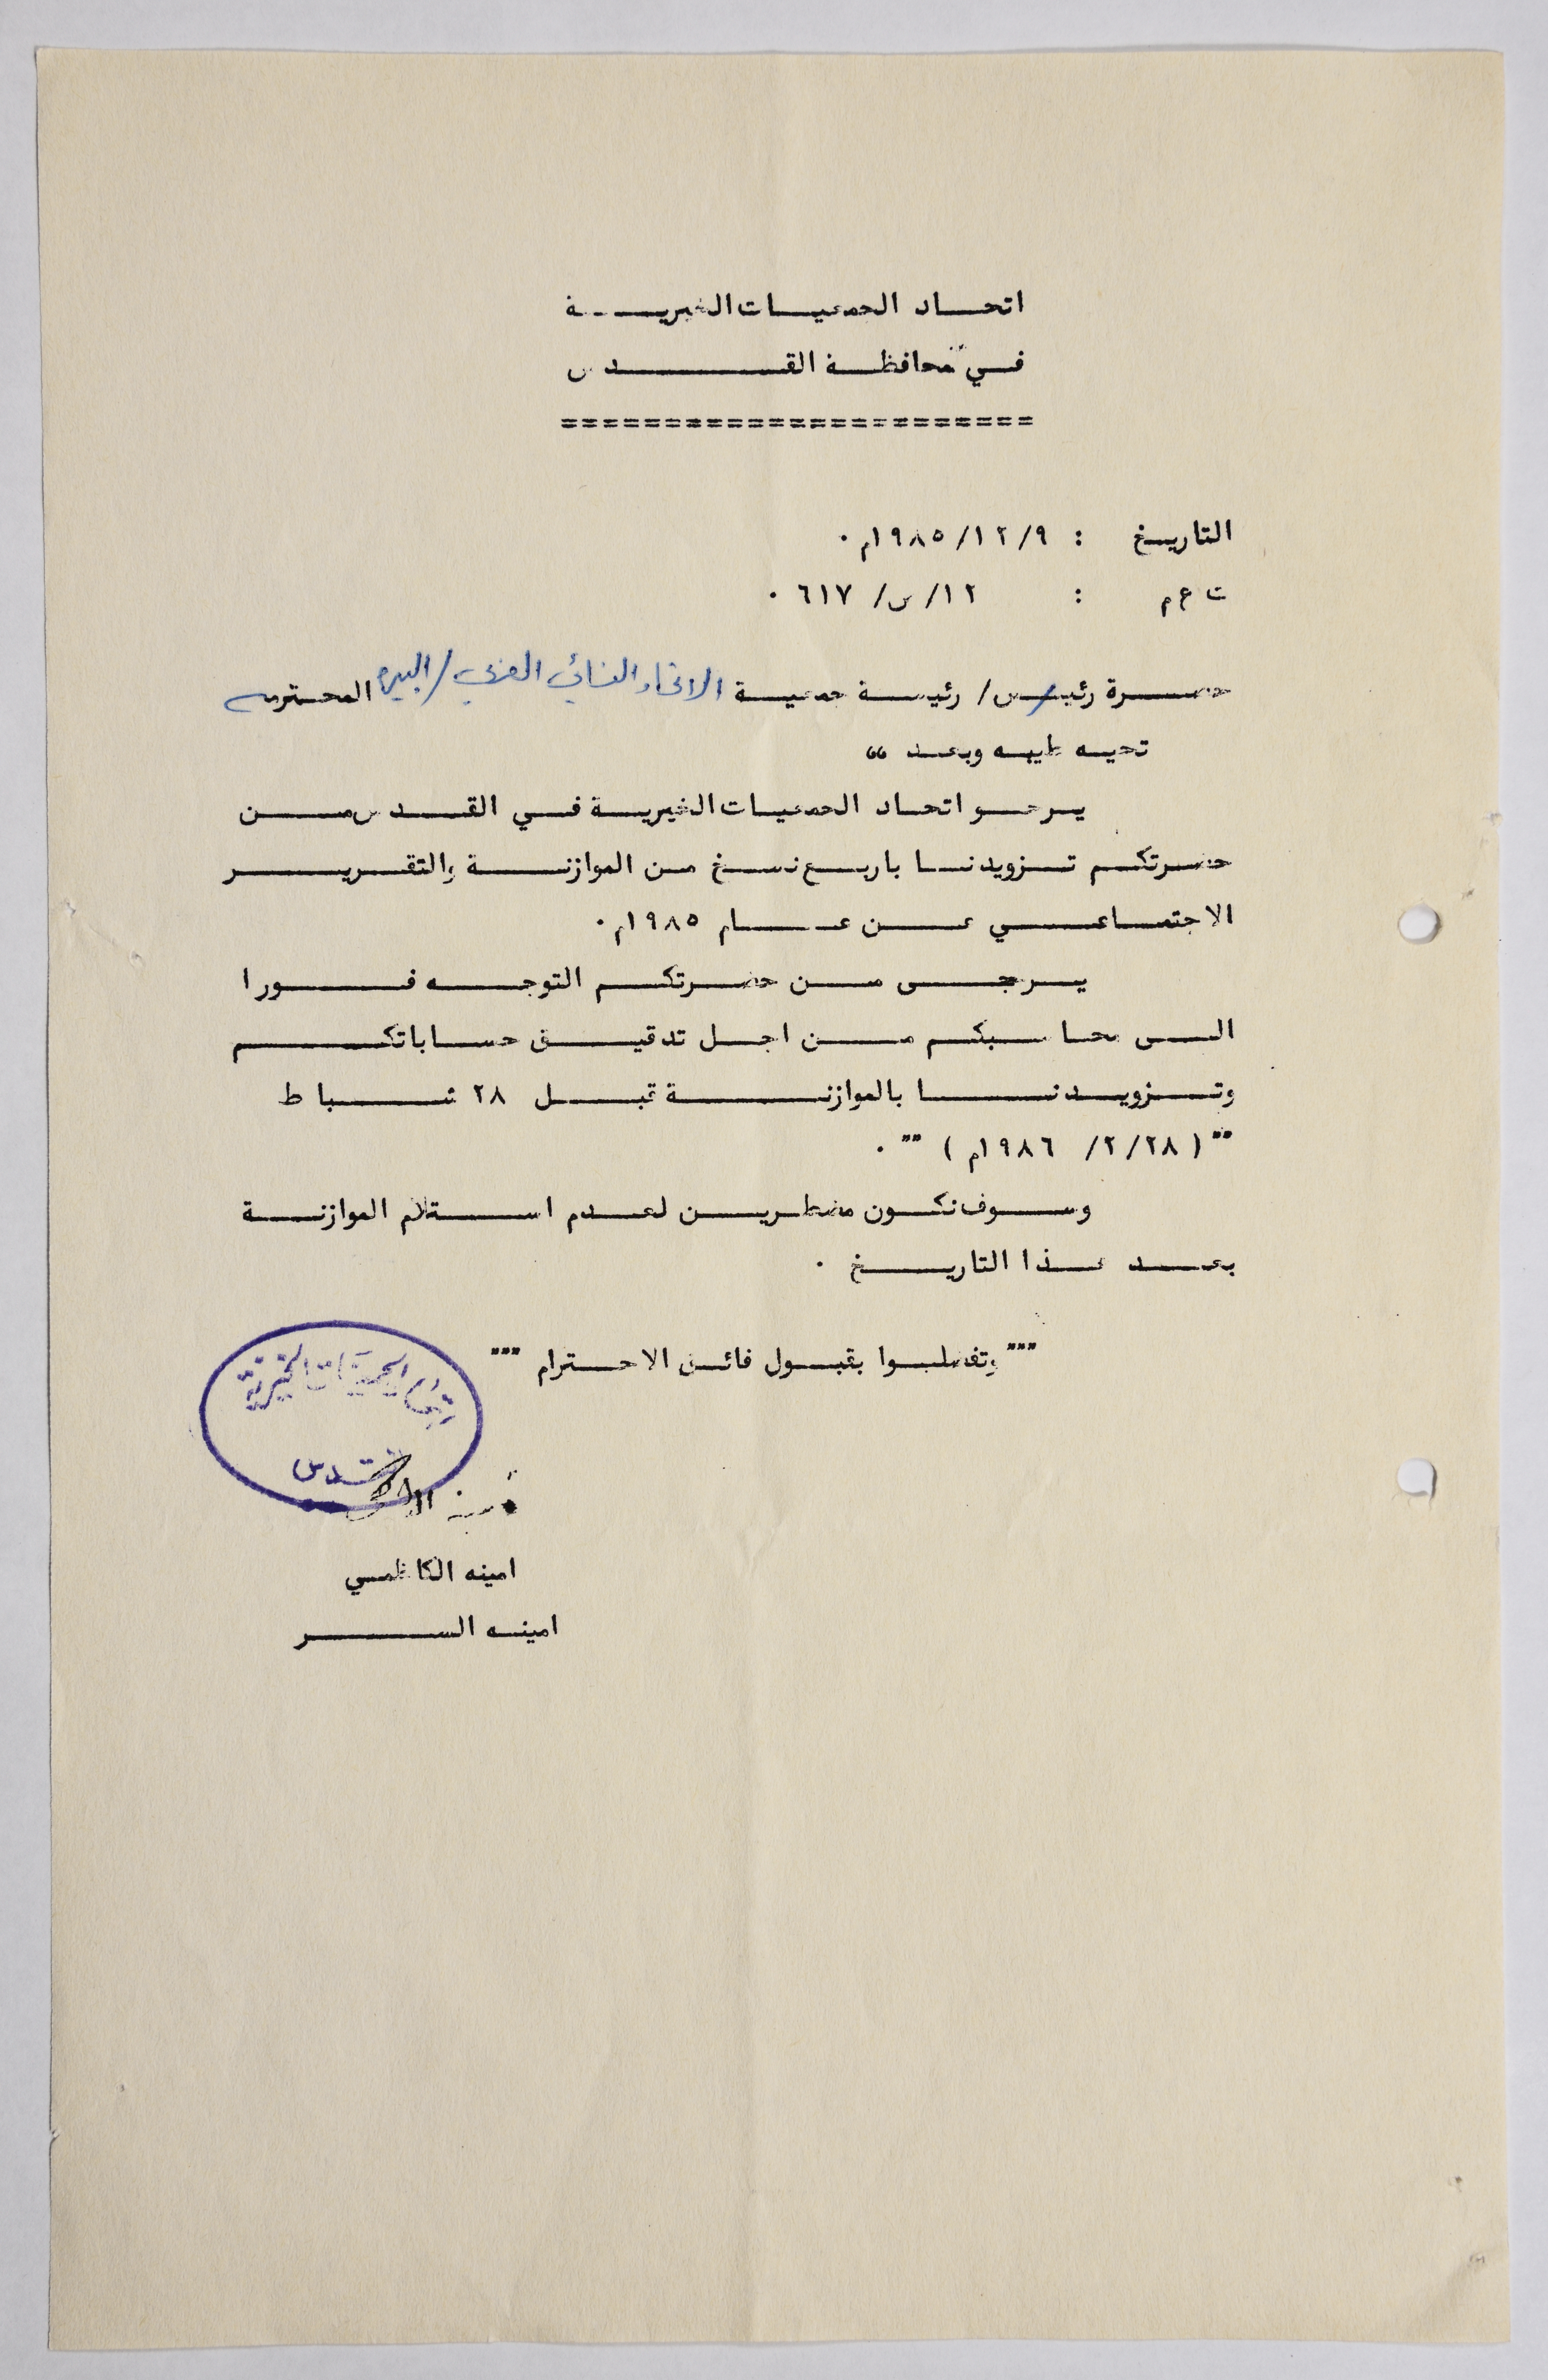 اتحاد الجمعيات الخيرية
في محافظة القدس
=======================
التاريخ : ١٩٨٥/١٢/٩م٠
ت ع م : ١٢/س/ ٦١٧ ٠
حضرة رئيس/ رئيسة جمعية الاتحاد النسائي العربي / البيره المحترمه
تحيه طيبه وبعد ،،
يرجو اتحاد الجمعيات الخيرية في القدس من
حضرتكم تزويدنا باربع نسخ من الموازنة والتقرير
الاجتماعي عن عام ١٩٨٥م٠
يرجى من حضرتكم التوجه فورا
الى محاسبكم من اجل تدقيق حساباتكم
وتزويدنا بالموازنة قبل ٢٨ شباط
"" ( ٢/٢٨/ ١٩٨٦م ) "" ٠
وسوف نكون مضطرين لعدم استلام الموازنة
بعد هذا التاريخ ٠
""" وتفضلوا بقبول فائق الاحترام """
اتحاد الجمعيات الخيرية
القدس
امينه الكاظمي
امينه السر